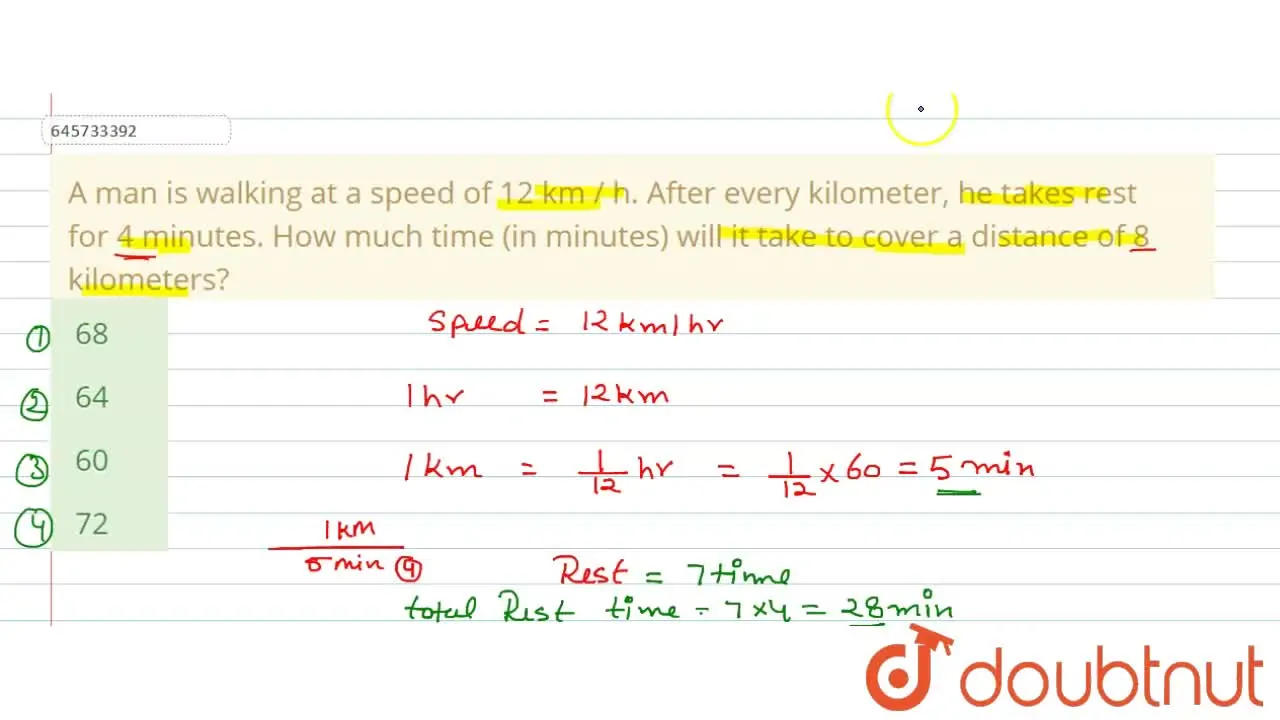 645733392
A man is walking at a speed of 12 km / h. After every kilometer, he takes rest
for 4 minutes. How much time (in minutes) will it take to cover a distance of 8
kilometers?
① 68
② 64
③ 60
④ 72
Speed = 12 km/hr
1 hr = 12 km
1 km = 1/12 hr = 1/12 × 60 = 5 min
1 km
5 min ④
Rest = 7 time
total Rest time - 7×4 = 28 min
doubtnut